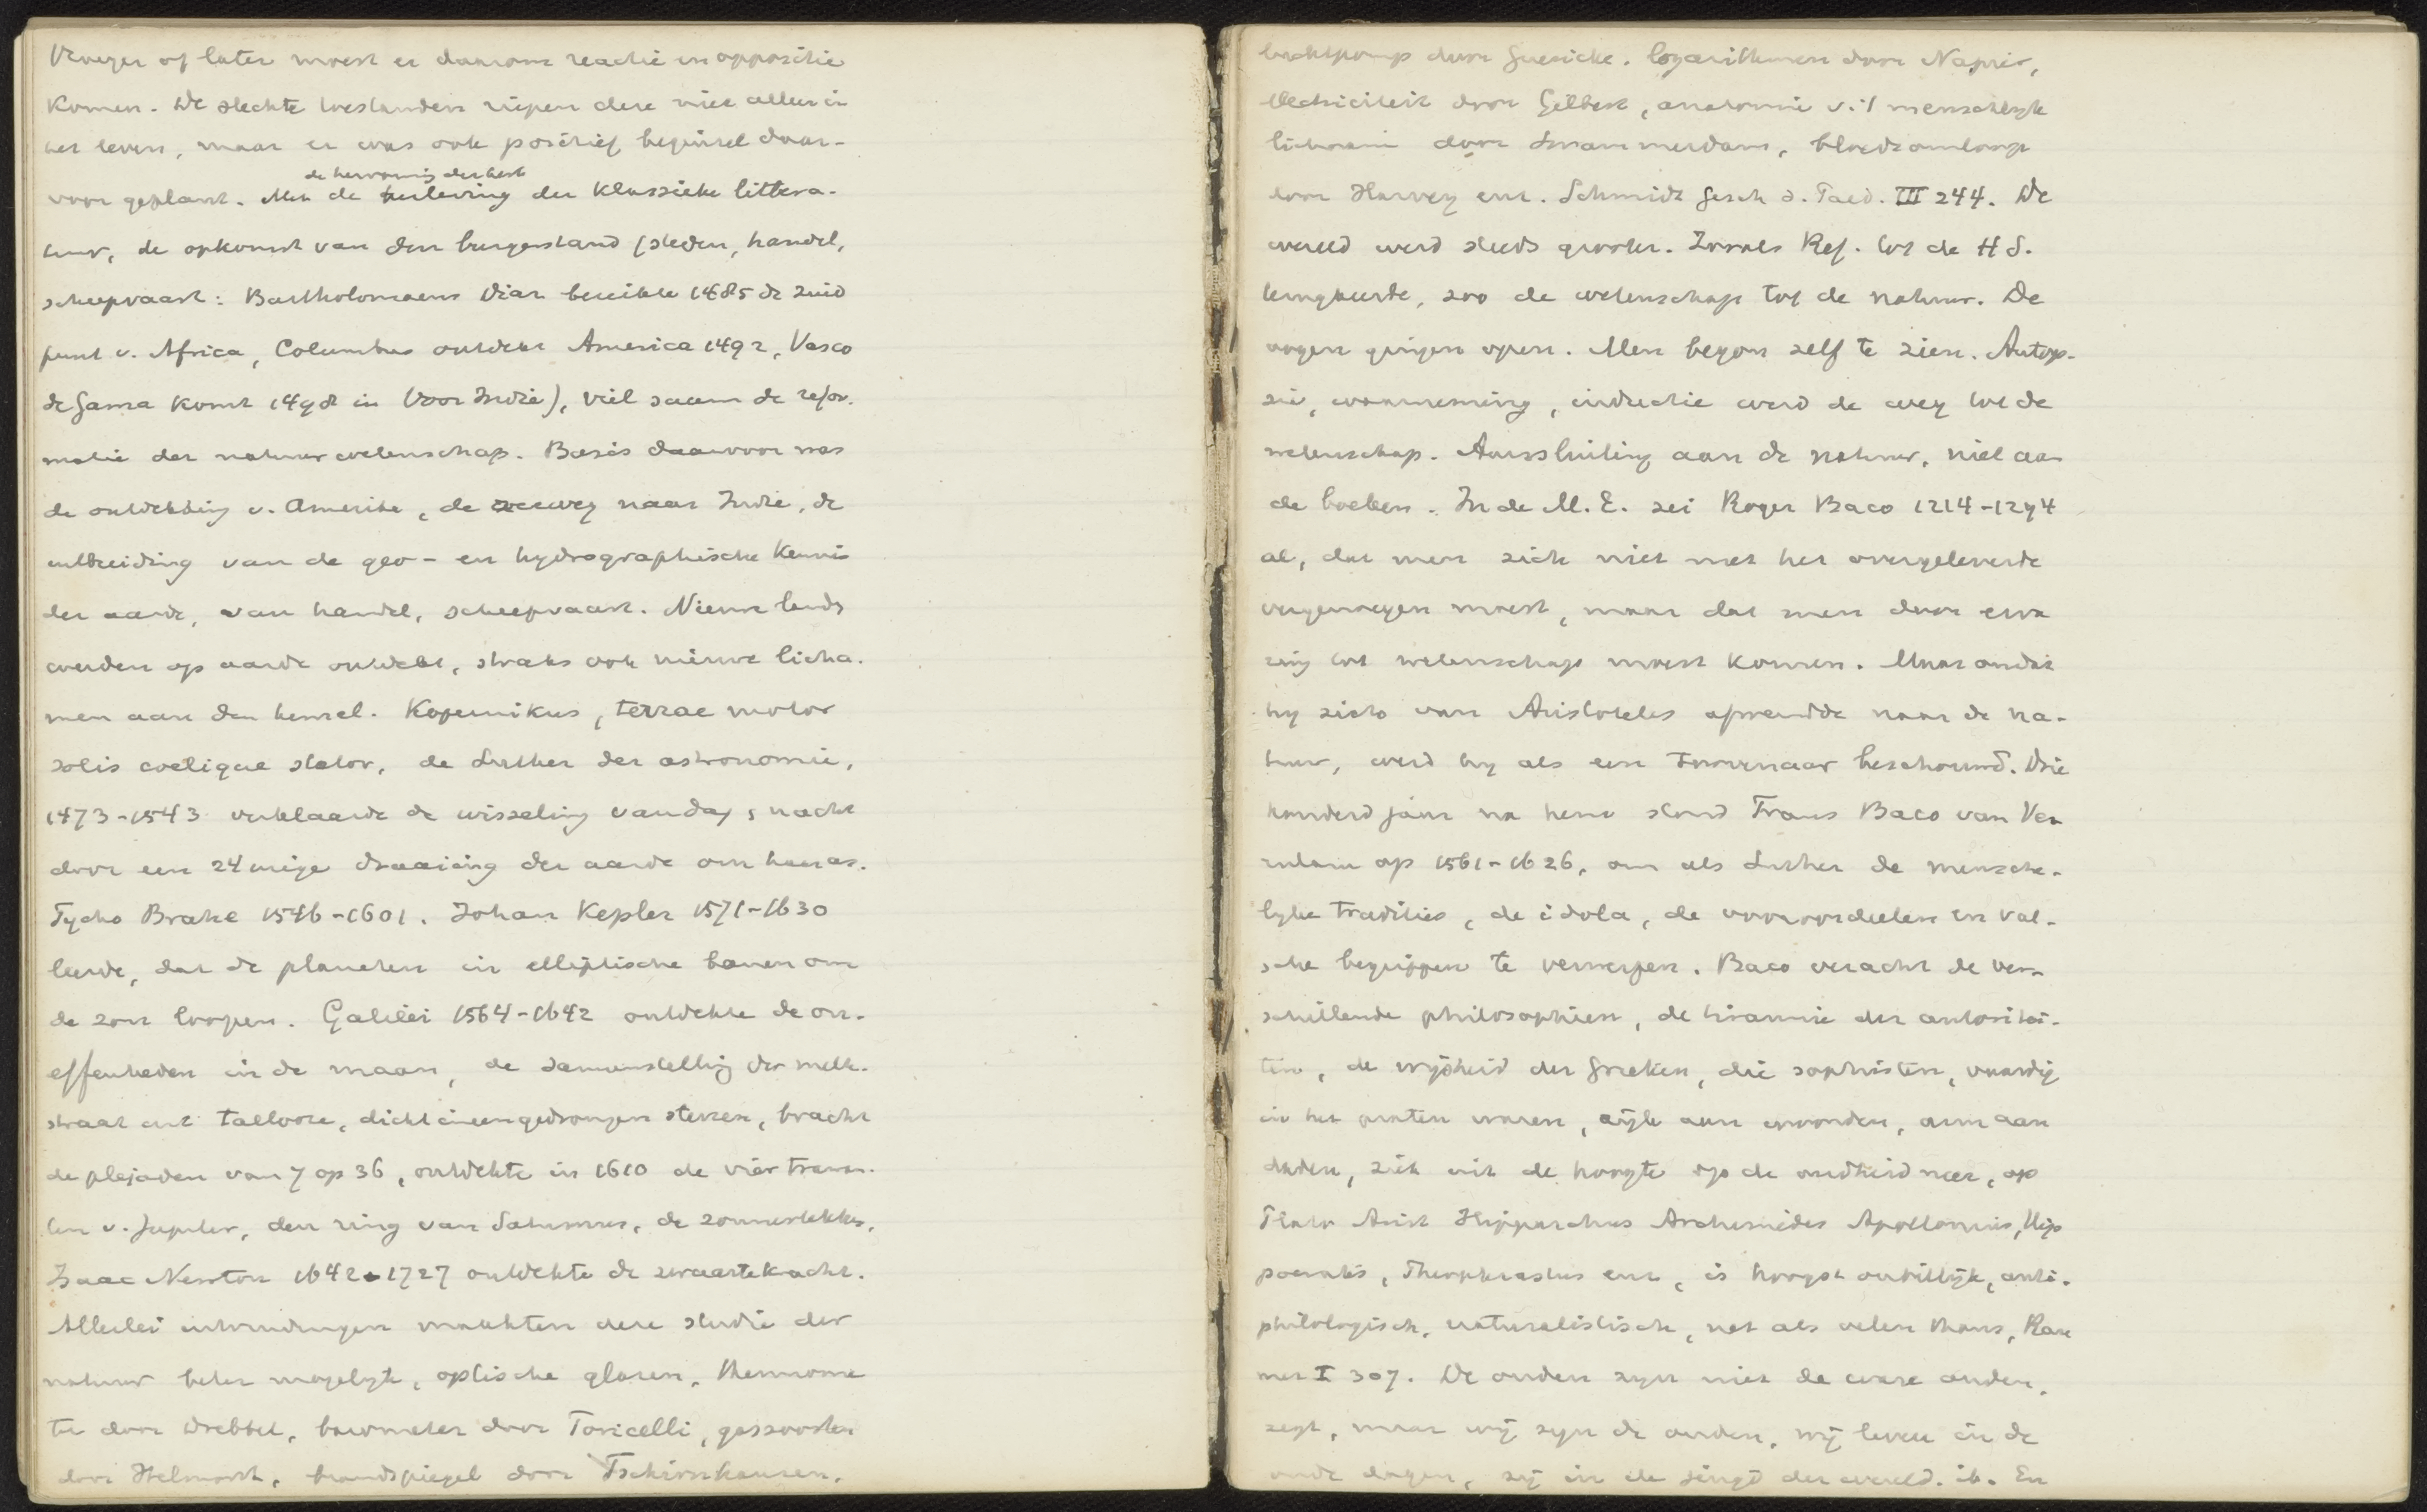 Vroeger of later moest er daarom reactie en oppositie
komen. De slechte toestanden riepen deze niet alleen in
het leven, maar er was ook positief beginsel daar-
de hervorming der kerk
voor geplant. Met de herleving der klassieke littera-
tuur, de opkomst van den burgerstand (steden, handel,
scheepvaart: Bartholomaeus Diaz bereikte 1485 de zuid
punt v. Africa, Columbus ontdekt America 1492, Vasco
de Gama komt 1498 in Voor Indië), viel saam de refor-
matie der natuurwetenschap. Basis daarvoor was
de ontdekking v. Amerika, de zeeweg naar Indië, de
uitbreiding van de geo- en hydrographische kennis
der aarde, van handel, scheepvaart. Nieuwe lands
werden op aarde ontdekt, straks ook nieuwe licha-
men aan den hemel. Kopernikus, terrae motor
solis coelique stator, de Luther der astronomie,
1473-1543 verklaarde de wisseling van dag & nacht
door een 24 urige draaiing der aarde om haar as.
Tycho Brahe 1546-1601. Johan Kepler 1571-1630
leerde, dat de planeten in elliptische banen om
de zon loopen. Galilei 1564-1642 ontdekte de on-
effenheden in de maan, de samenstelling der melk-
straat uit tallooze, dicht ineengedrongen sterren, bracht
de plejaden van 7 op 36, ontdekte in 1610 de vier trawan-
ten v. Jupiter, den ring van Saturnus, de zonnevlekken.
Isaac Newton 1642-1727 ontdekte de zwaartekracht.
Allerlei uitvindingen maakten deze studie der
natuur beter mogelijk, optische glazen, thermome
ter door Drebbel, barometer door Toricelli, gassoorten
door Helmont, brandspiegel door Tschirnhausen,
luchtpomp door Guericke. logarithmen door Napier,
electriciteit door Gilbert, anatomie v. 't menschelyk
lichaam door Swammerdam, bloedsomloop
door Harvey enz. Schmidt Gesch d. Paed. III 244. De
wereld werd steeds grooter. Zooals Ref. tot de H S.
terugkeerde, zoo de wetenschap tot de natuur. De
oogen gingen open. Men begon zelf te zien. Autop-
sie, waarneming, inductie werd de weg tot de
wetenschap. Aansluiting aan de natuur, niet aan
de boeken. In de M. E. zei Roger Baco 1214-1294
al, dat men zich niet met het overgeleverde
vergenoegen moest, maar dat men door erva
ring tot wetenschap moest komen. Maar omdat
hy zich van Aristoteles afwendde naar de na-
tuur, werd hy als een toovenaar beschouwd. Drie
honderd jaar na hem stond Frans Baco van Ver
rulam op 1561-1626, om als Luther de mensche-
lyke tradities, de idola, de vooroordeelen en val-
sche begrippen te verwerpen. Baco veracht de ver-
schillende philosophieen, de tirannie der autoritei-
ten, de wijsheid der Grieken, die sophisten, vaardig
in het praten waren, rijk aan woorden, arm aan
daden, ziet uit de hoogte op de oudheid neer, op
Plato Arist Hipparchus Archimedes Apollonius, Hip
pocrates, Theophrastus enz, is hoogst onbillijk, anti-
philologisch, naturalistisch, net als velen thans, Rau
mer I 307. De ouden zyn niet de ware ouden,
zegt, maar wij zyn de ouden, wij leven in de
oude dagen, zij in de jeugd der wereld. ib. En